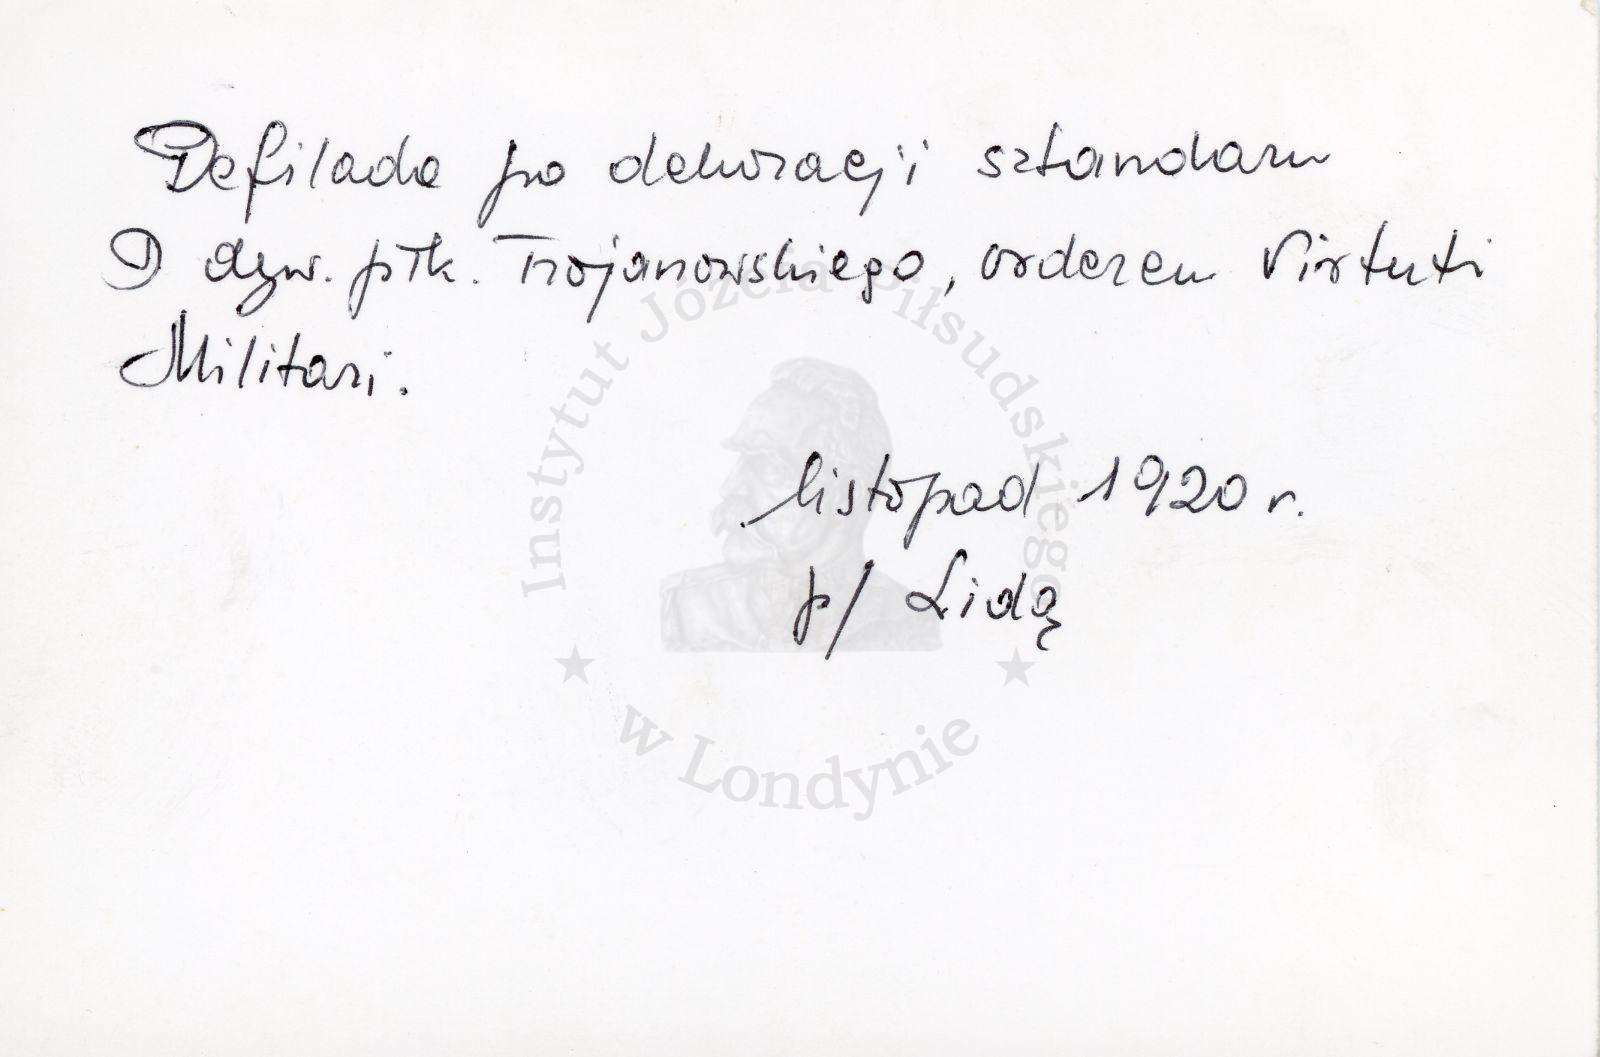 Defilada po dekoracji sztandaru
D dyw. płk. Trojanowskiego, orderem Virtuti
Militari.
listopad 1920 r.
p/ Lidą
Instytut Józefa Piłsudskiego
w Londynie